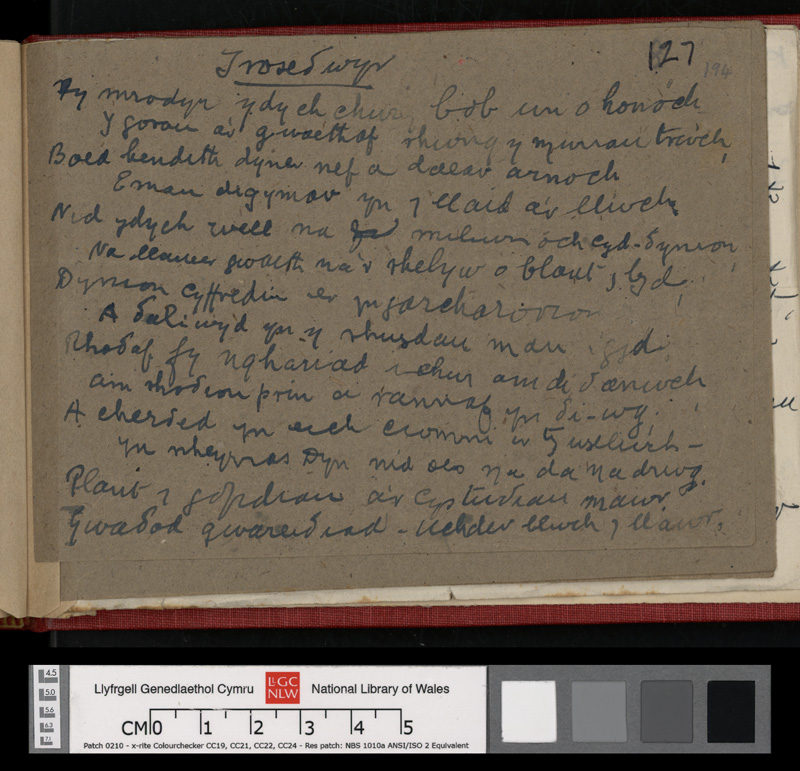 Trosedwyr
127
194
Fy mrodyr ydych chwi, bob un o honoch
Y gorau a'r gwaethaf rhwng y muriau trwch,
Boed bendith dyner nef a daear arnoch
E mau digymar yn y llaid a'r llwch.
Nid ydych well na miliwn och cyd-ðynion
Na llawer gwaeth na'r rhelyw o blant y byd,
Dynion cyffredin er yn garcharorion
A ðaliwyd yn y rhwydau mân i gyd
Rhoðaf fy nghariad i chwi am di ðæniwch
am rhoðion prin a rannaf yn ði-wg,
A cherðed yn eich cwmni
yn nheyrnas Dyn nid oes na da na drwg.
Plant y gofidiau a'r cystuðiau mawr
Gwaðod gwareiðiad - uchder llwch y llawr.
Llyfrgell Genedlaethol Cymru
LLGC
NLW
National Library of Wales
CM 0 1 2 3 4 5
Patch 0210 - x-rite Colourchecker CC19, CC21, CC22, CC24 - Res patch: NBS 1010a ANSI/ISO 2 Equivalent
4.5
5.0
5.6
6.3
7.1